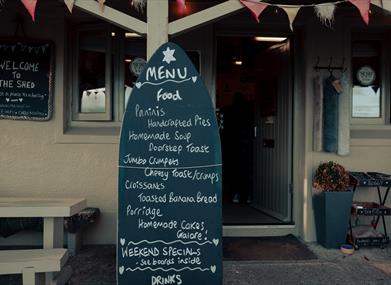 WELCOME
TO
THE SHED
MENU
Food
Paninis
Handcrafted Pies
Homemade Soup
Doorstep Toast
Jumbo Crumpets
Cheesy Toast/Crumps
Croissants
Toasted Banana Bread
Porridge
Homemade Cakes
Galore!
WEEKEND SPECIALS
- see boards inside
DRINKS